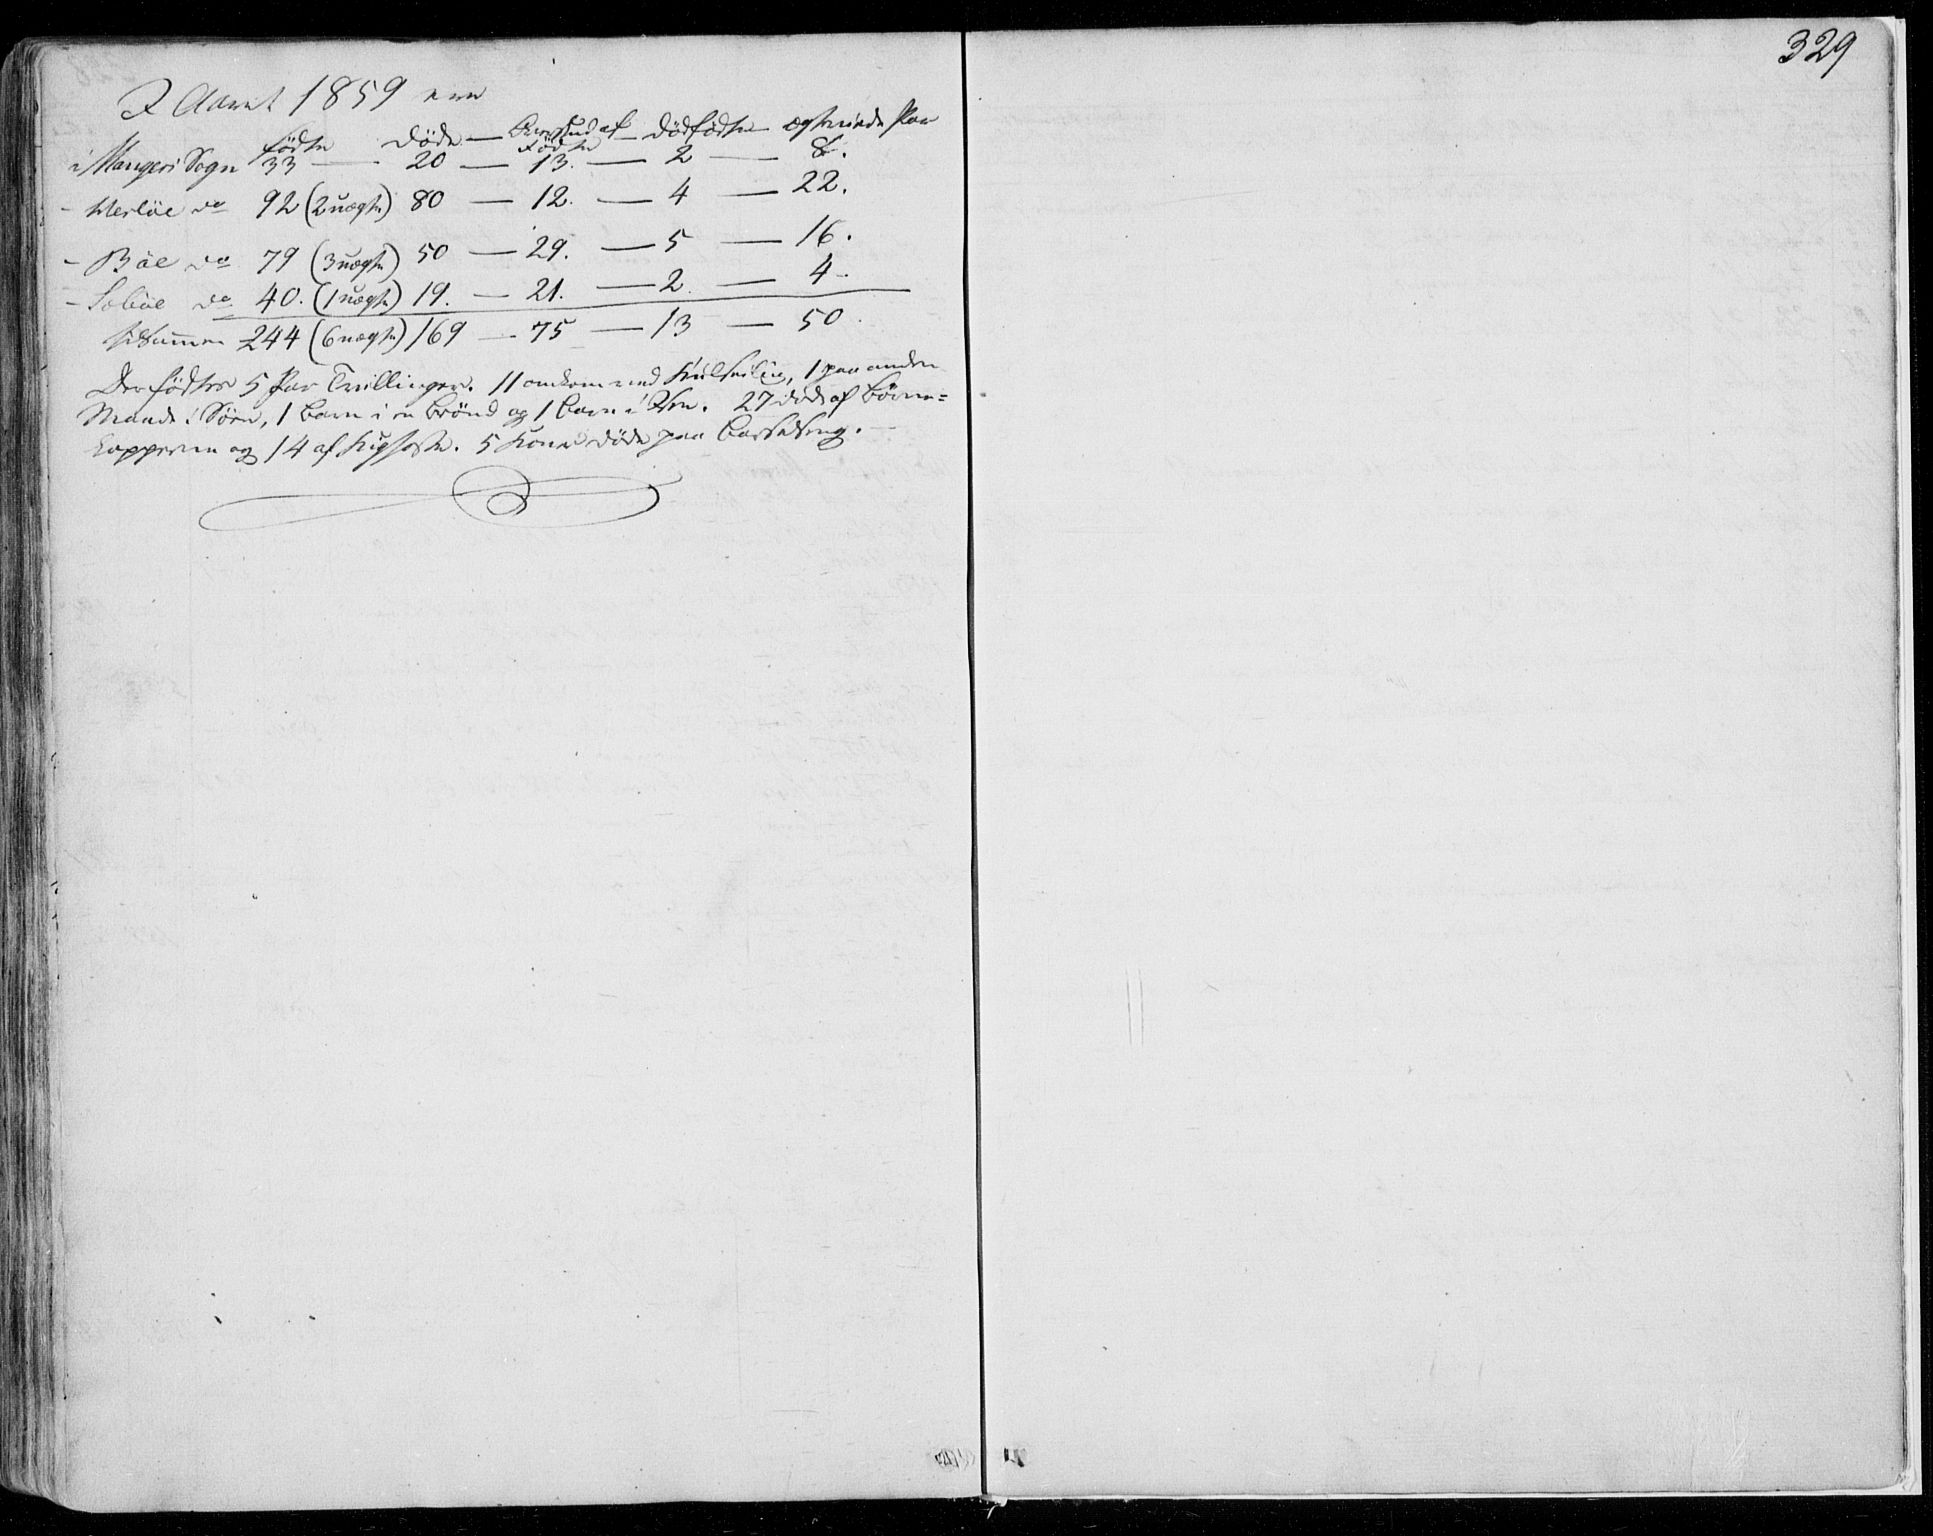 329
I Aaret 1859 ere
fødte døde — Overskud af — dødfødte — ægteviede Par
Fødte
i Mangers Sogn 33 — 20 — 13. — 2 — 8.
- Herløe do 92 (2 uægte) 80 — 12. — 4 — 22.
- Bøe do 79 (3 uægte) 50 — 29. — 5 — 16.
- Sæbøe do 40. (1 uægte) 19. — 21. — 2. — 4.
tilsammen 244 (6 uægte) 169 — 75 — 13 — 50.
Der fødtes 5 Par Tvillinger. 11 omkom ved Kulseiling, 1 paa anden
Maade i Søen, 1 Barn i en Brønd og 1 Barn i Ilden. 27 døde af Børne=
kopperne og 14 af Kighoste. 5 Koner døde paa Barselseng.